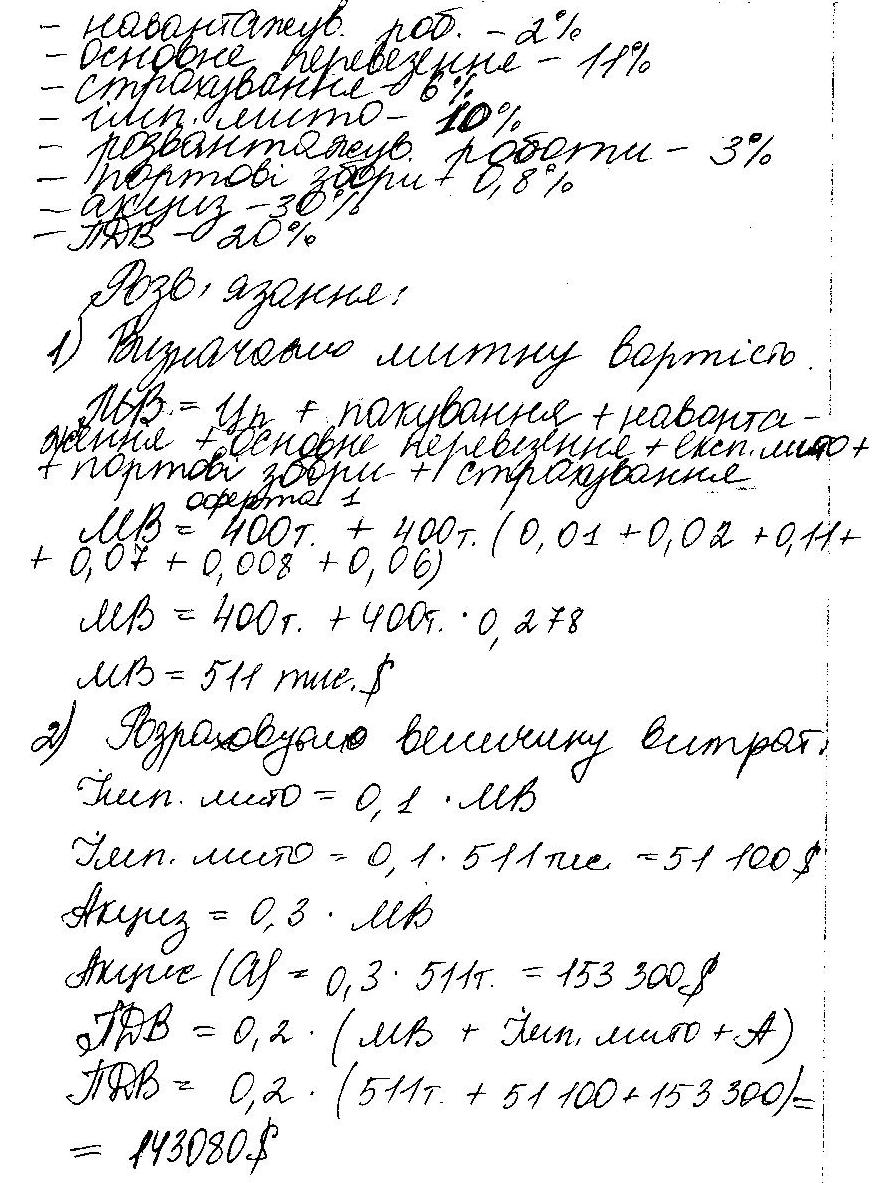 - навантажув. роб. - 2%
- основне перевезення - 11%
- страхування - 6%
- імп. мито - 10%
- розвантажув. роботи - 3%
- портові збори - 0,8%
- акциз - 30%
- ПДВ - 20%
Розв'язання:
1) Визначаємо митну вартість.
МВ = Цп + пакування + наванта-
ження + основне перевезення + експ. мито +
+ портові збори + страхування
оферта 1
МВ = 400т. + 400т. (0,01 + 0,02 + 0,11 +
+ 0,07 + 0,008 + 0,06)
МВ = 400т. + 400т. · 0,278
МВ = 511 тис. $
2) Розраховуємо величину витрат:
Імп. мито = 0,1 · МВ
Імп. мито = 0,1 · 511 тис. = 51 100 $
Акциз = 0,3 · МВ
Акциз (А) = 0,3 · 511т. = 153 300 $
ПДВ = 0,2 · (МВ + Імп. мито + А)
ПДВ = 0,2 · (511т. + 51 100 + 153 300) =
= 143080 $